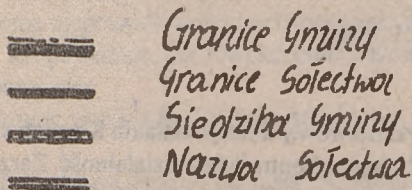 Granice Gminy
Granice Sołectwa
Siedziba Gminy
Nazwa Sołectwa